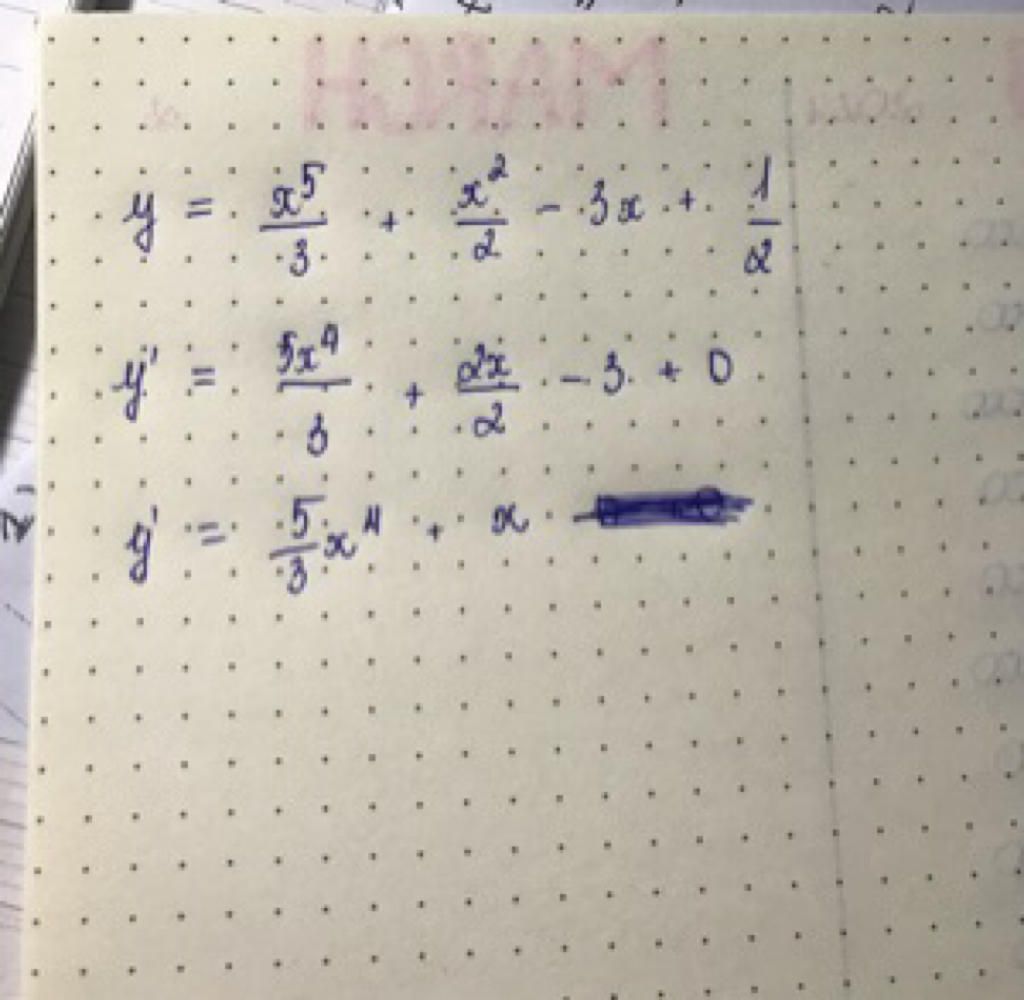 y = x⁵/3 + x²/2 - 3x + 1/2
y' = 5x⁴/3 + 2x/2 - 3 + 0
y' = 5/3 x⁴ + x